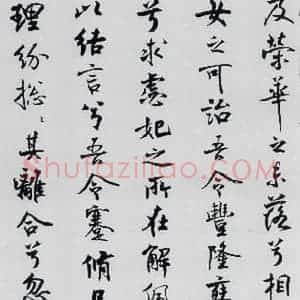 及榮華之未落兮相
女之可詒吾令豐隆
兮求虙妃之所在解佩
以結言兮吾令蹇脩
理紛総〻其離合兮忽
Shufaziliao.com